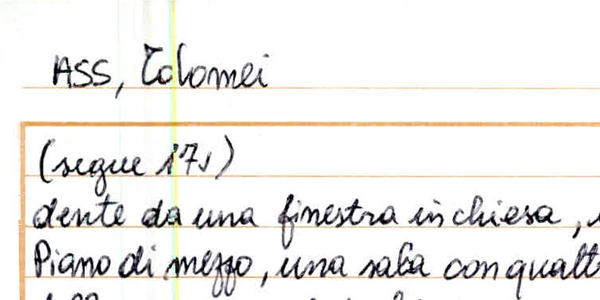 ASS, Tolomei
(segue 17v)
dente da una finestra in chiesa,
Piano di mezzo, una sala con quatt